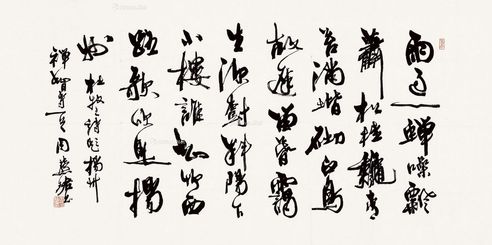 雨過一蟬噪飄
蕭松桂龝青
苔滿階砌白鳥
故遲留暮靄
生深樹斜陽下
小樓誰知竹西
路歌吹是揚
州 杜牧詩題揚州
禪智寺